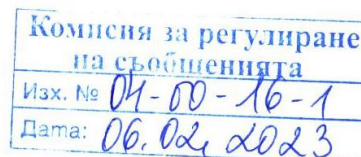 Комисия за регулиране
на съобщенията
Изх. № 04-00-16-1
Дата: 06.02. 2023